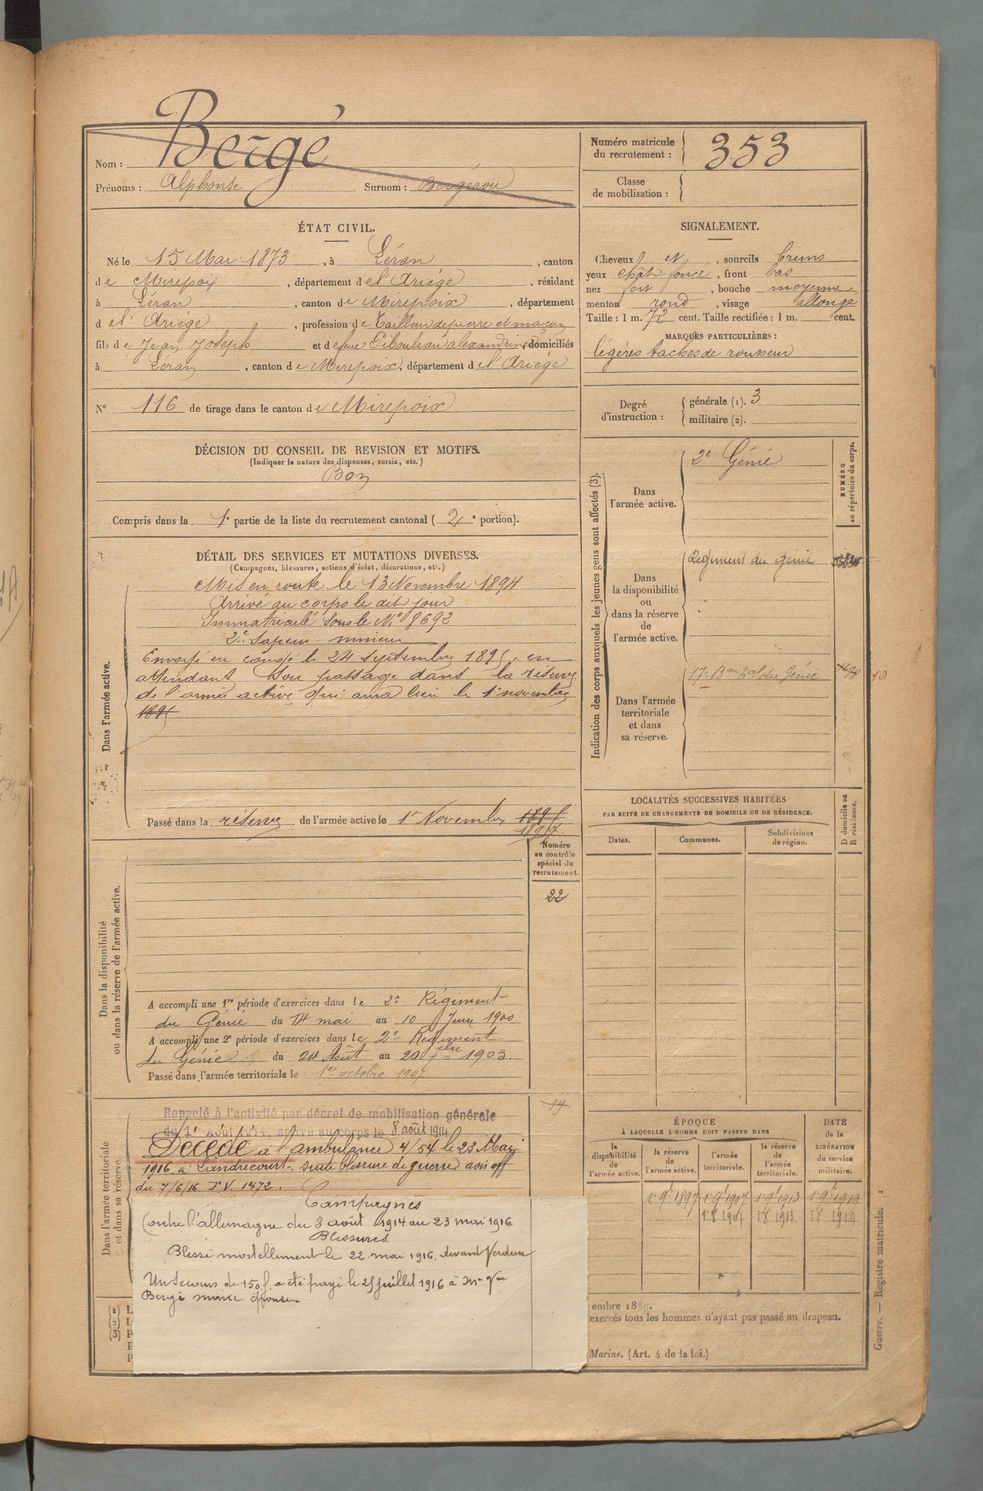 Nom : Bergé
Prénoms : Alphonse Surnom : Bergérou
Numéro matricule du recrutement : 353
Classe de mobilisation :
ÉTAT CIVIL.
Né le 15 Mai 1873, à Léran, canton
de Mirepoix, département de l'Ariége, résidant
à Léran, canton de Mirepoix, département
d el' Ariége, profession de tailleur de pierre et maçon
fils de Jean Joseph et de domiciliés
à Léran, canton de Mirepoix, département de l'Ariége
N° 116 de tirage dans le canton de Mirepoix
DÉCISION DU CONSEIL DE REVISION ET MOTIFS.
(Indiquer la nature des dispenses, sursis, etc.)
Bon
Compris dans la 1e partie de la liste du recrutement cantonal (2e portion).
DÉTAIL DES SERVICES ET MUTATIONS DIVERSES.
(Campagnes, blessures, actions d'éclat, décorations, etc.)
Dans l'armée active.
Mis en route le 13 Novembre 1894
Arrivé au corps le dit jour
Immatriculé sous le N° 8692
2e Sapeur-mineur
Envoyé en congé le 24 septembre 1895, en
attendant son passage dans la réserve
de l'armée active qui aura lieu le 1er novembre
1895
Passé dans la réserve de l'armée active le 1er Novembre 1897
Dans la disponibilité ou dans la réserve de l'armée active.
Numéro au contrôle spécial du recrutement.
22
A accompli une 1re période d'exercices dans le 2e Régiment
du Génie du 14 mai au 10 Juin 1900
A accompli une 2e période d'exercices dans le 2e Régiment
du Génie du 24 Août au 20 7bre 1903.
Passé dans l'armée territoriale le 1er octobre 1907
Dans l'armée territoriale et dans sa réserve.
19
Rappelé à l'activité par décret de mobilisation générale
du 1er Août 1914, arrivé au corps le 8 août 1914
Décédé à l'ambulance 4/54 le 23 Mai
1916 à Landrecourt. suite blessure de guerre avis off
du 7/6/16. F.V. 1472.
Campagnes
Contre l'allemagne du 8 août 1914 au 23 mai 1916
Blessures
Blessé mortellement le 22 mai 1916 devant Verdun
Un secours de 150f a été payé le 25 juillet 1916 à Mme Vve
Bergé
SIGNALEMENT.
Cheveux et, sourcils bruns
yeux, front bas
nez fort, bouche moyenne
menton rond, visage allongé
Taille : 1 m. 72 cent. Taille rectifiée : 1 m. cent.
MARQUES PARTICULIÈRES :
légères taches de rousseur
Degré d'instruction :
générale (1). 3
militaire (2).
Indication des corps auxquels les jeunes gens sont affectés (3).
NUMÉRO au répertoire du corps.
Dans l'armée active.
2e Génie
Dans la disponibilité ou dans la réserve de l'armée active.
Régiment du génie
Dans l'armée territoriale et dans sa réserve.
17e Bon tal du Génie
10
LOCALITÉS SUCCESSIVES HABITÉES
PAR SUITE DE CHANGEMENTS DE DOMICILE OU DE RÉSIDENCE.
Dates. Communes. Subdivisions de région. D domicile ou R résidence.
ÉPOQUE
À LAQUELLE L'HOMME DOIT PASSER DANS
DATE de la LIBÉRATION du service militaire.
la disponibilité de l'armée active.
la réserve de l'armée active.
l'armée territoriale.
la réserve de l'armée territoriale.
1 9e 1897 1 9e 1907 1 9e 1913 1 9e 1919
1 8 1907 1 8 1913 1 8 1919
embre 1889.
exercés tous les hommes n'ayant pas passé au drapeau.
Marine. (Art. 4 de la loi.)
Guerre. — Registre matricule.